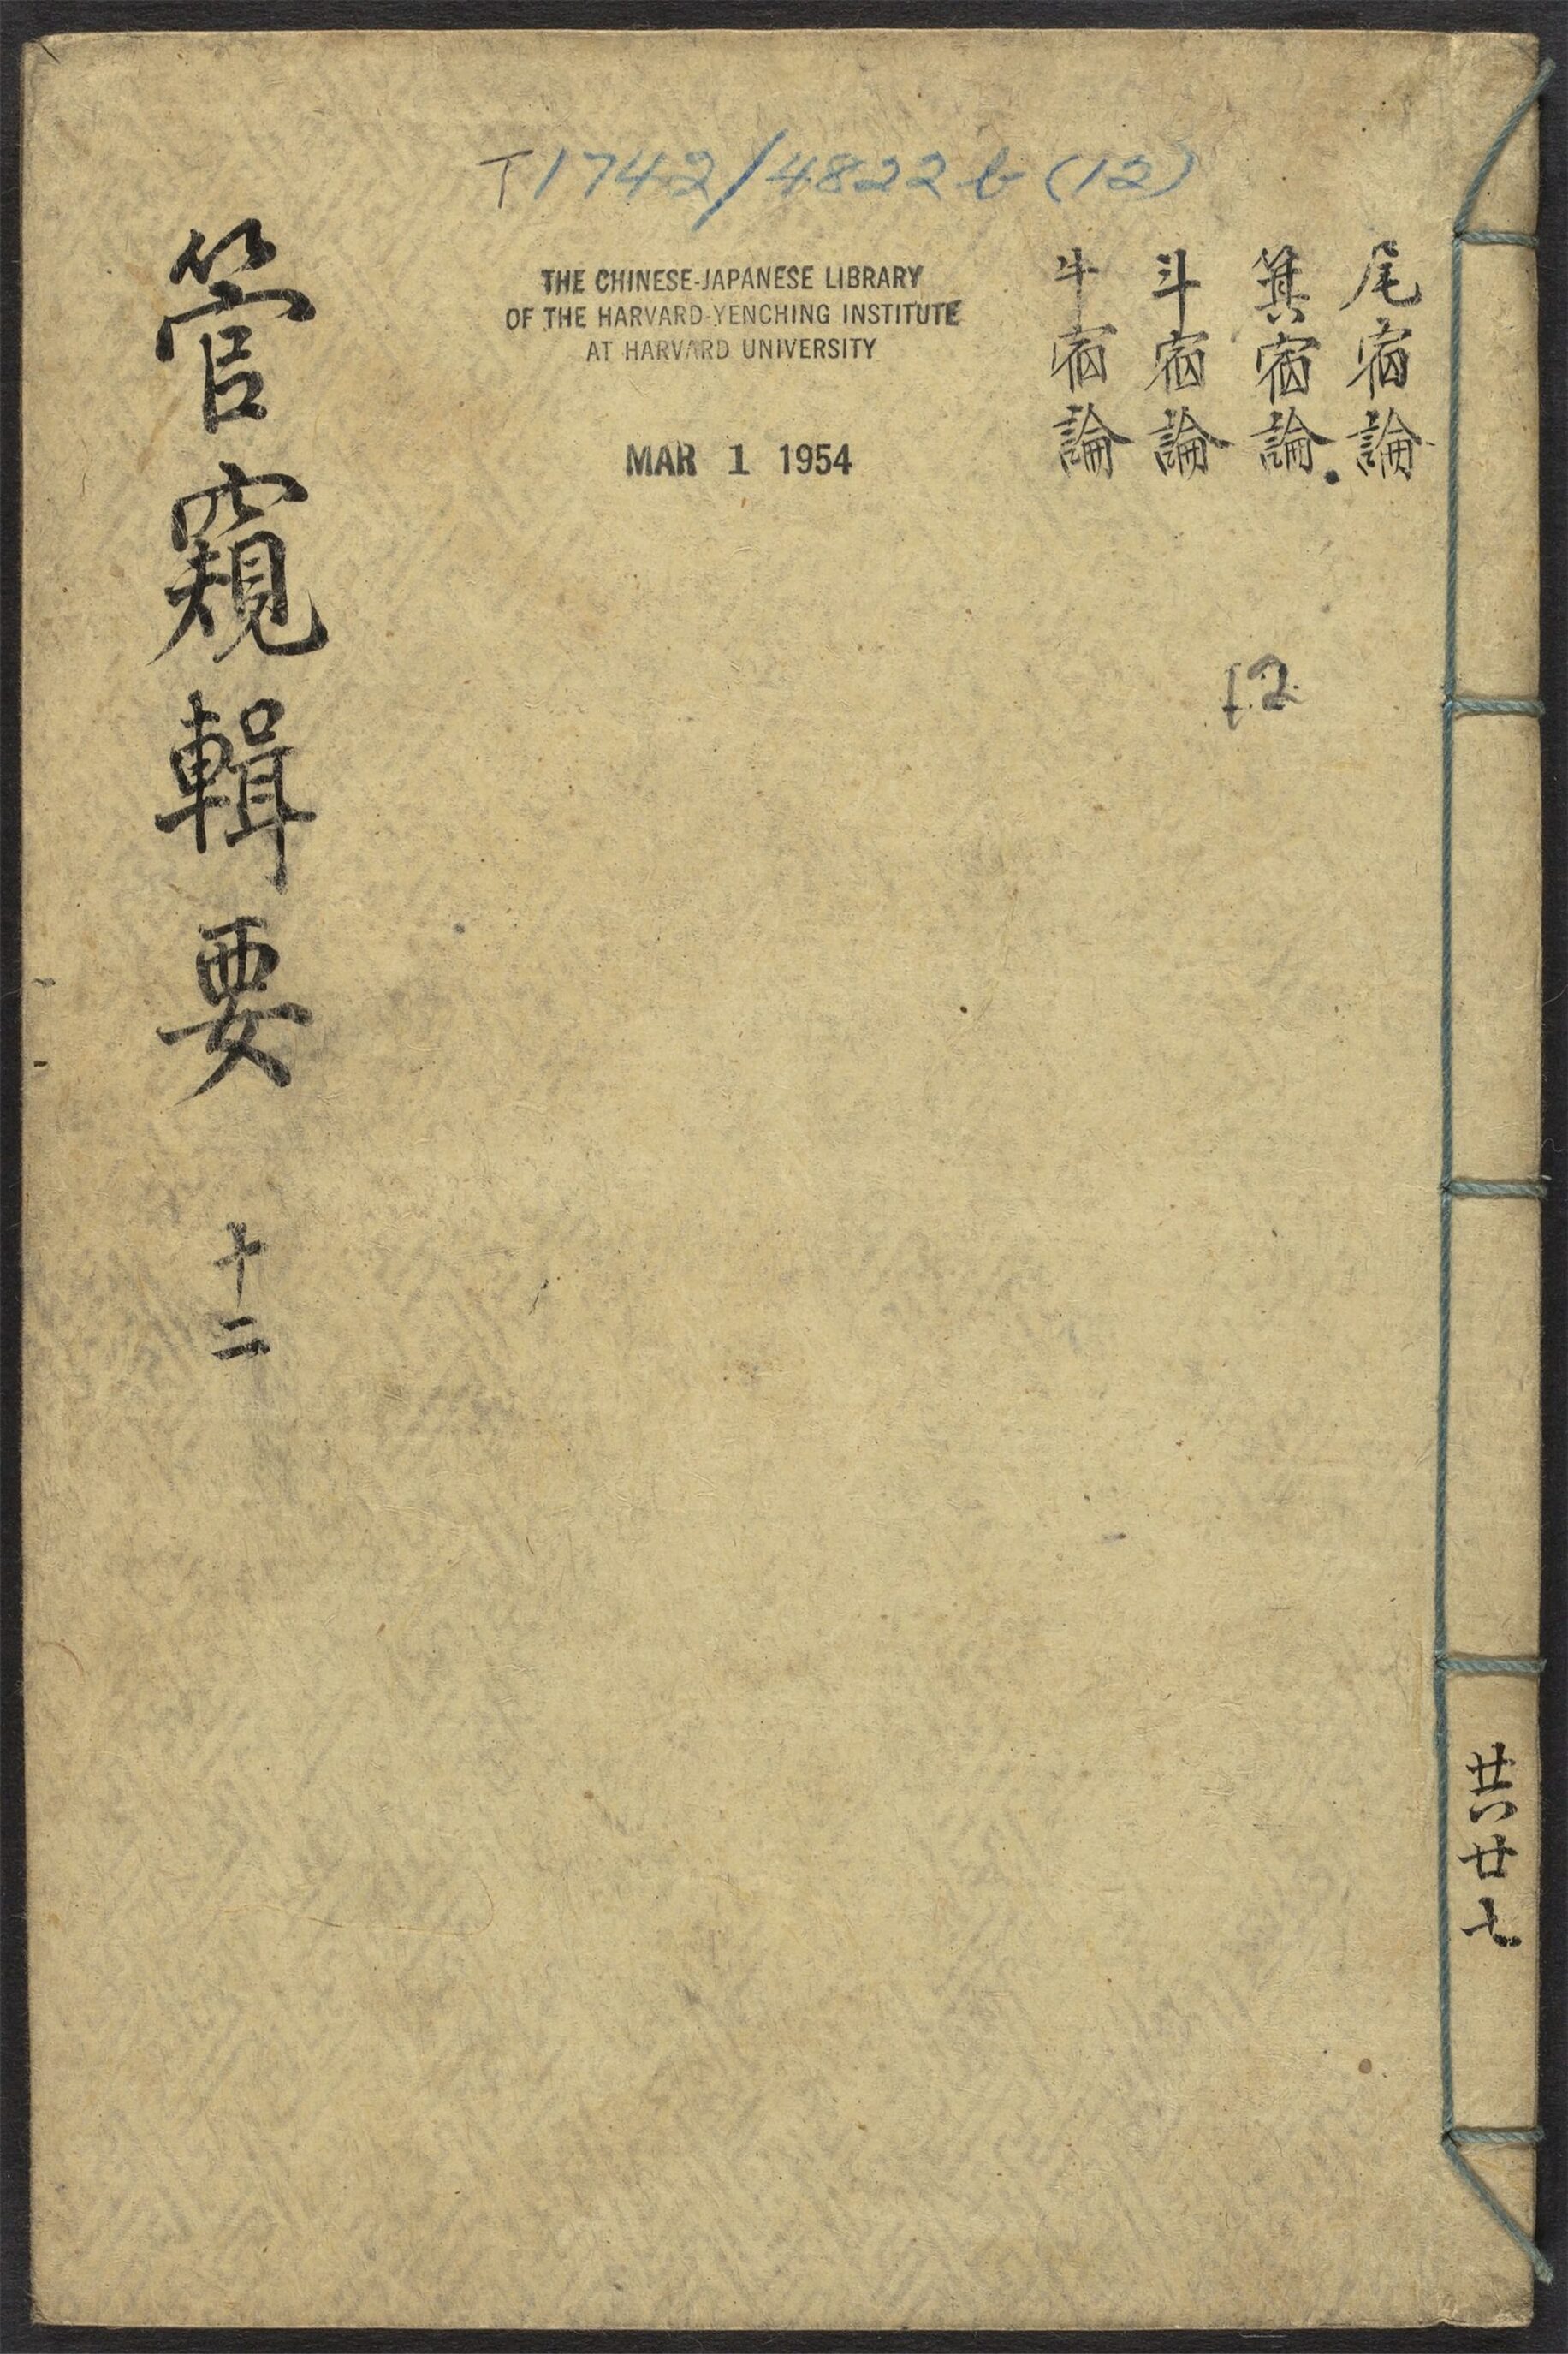 T1742/4822 b (12)
THE CHINESE-JAPANESE LIBRARY
OF THE HARVARD-YENCHING INSTITUTE
AT HARVARD UNIVERSITY
MAR 1 1954
尾宿論
箕宿論
斗宿論
牛宿論
12
管窺輯要 十二
共廿七